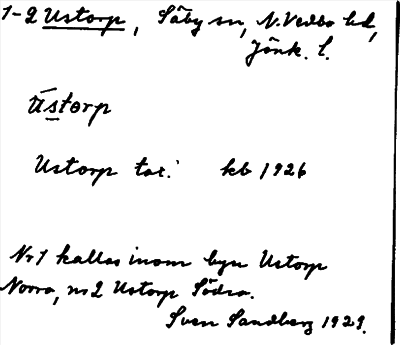 1-2 Ustorp, Säby sn, N. Vedbo hd,
Jönk. l.
Ūstorp
Ustorp tar. kb 1926
Nr 1 kallas inom byn Ustorp
Norra, nr 2 Ustorp Södra.
Sven Sandberg 1929.